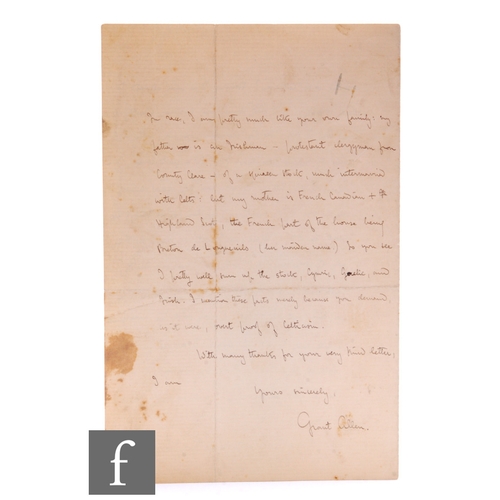 In race, I am pretty much like your own family: my
father is an Irishman – protestant clergyman from
County Clare – of a stock, much intermarried
with Celts: but my mother is French Canadian +
Highland Scot, the French part of the house being
Breton de Longueuils (her maiden name) So you see
I pretty well run up the stock, Cymric, Gaelic, and
Irish. I mention these facts merely because you demand,
as it were, proof of Celticism.
With many thanks for your very kind letter,
I am
Yours sincerely,
Grant Allen.
f